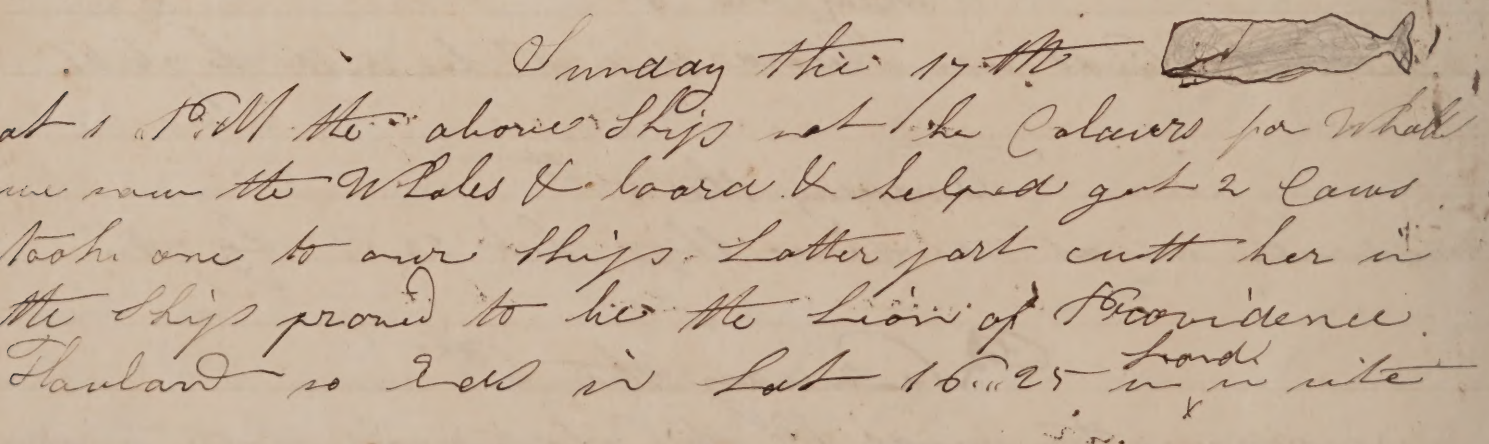 Sunday the 17th
at 1 P.M the above Ship set her Colours for Whales
we saw the Whales & loard & helped get 2 Cows
took one to our Ship. Latter part cutt her in
the Ship proved to be the Lion of Providence
Howland so Ends in Lat 16..25 Land in site